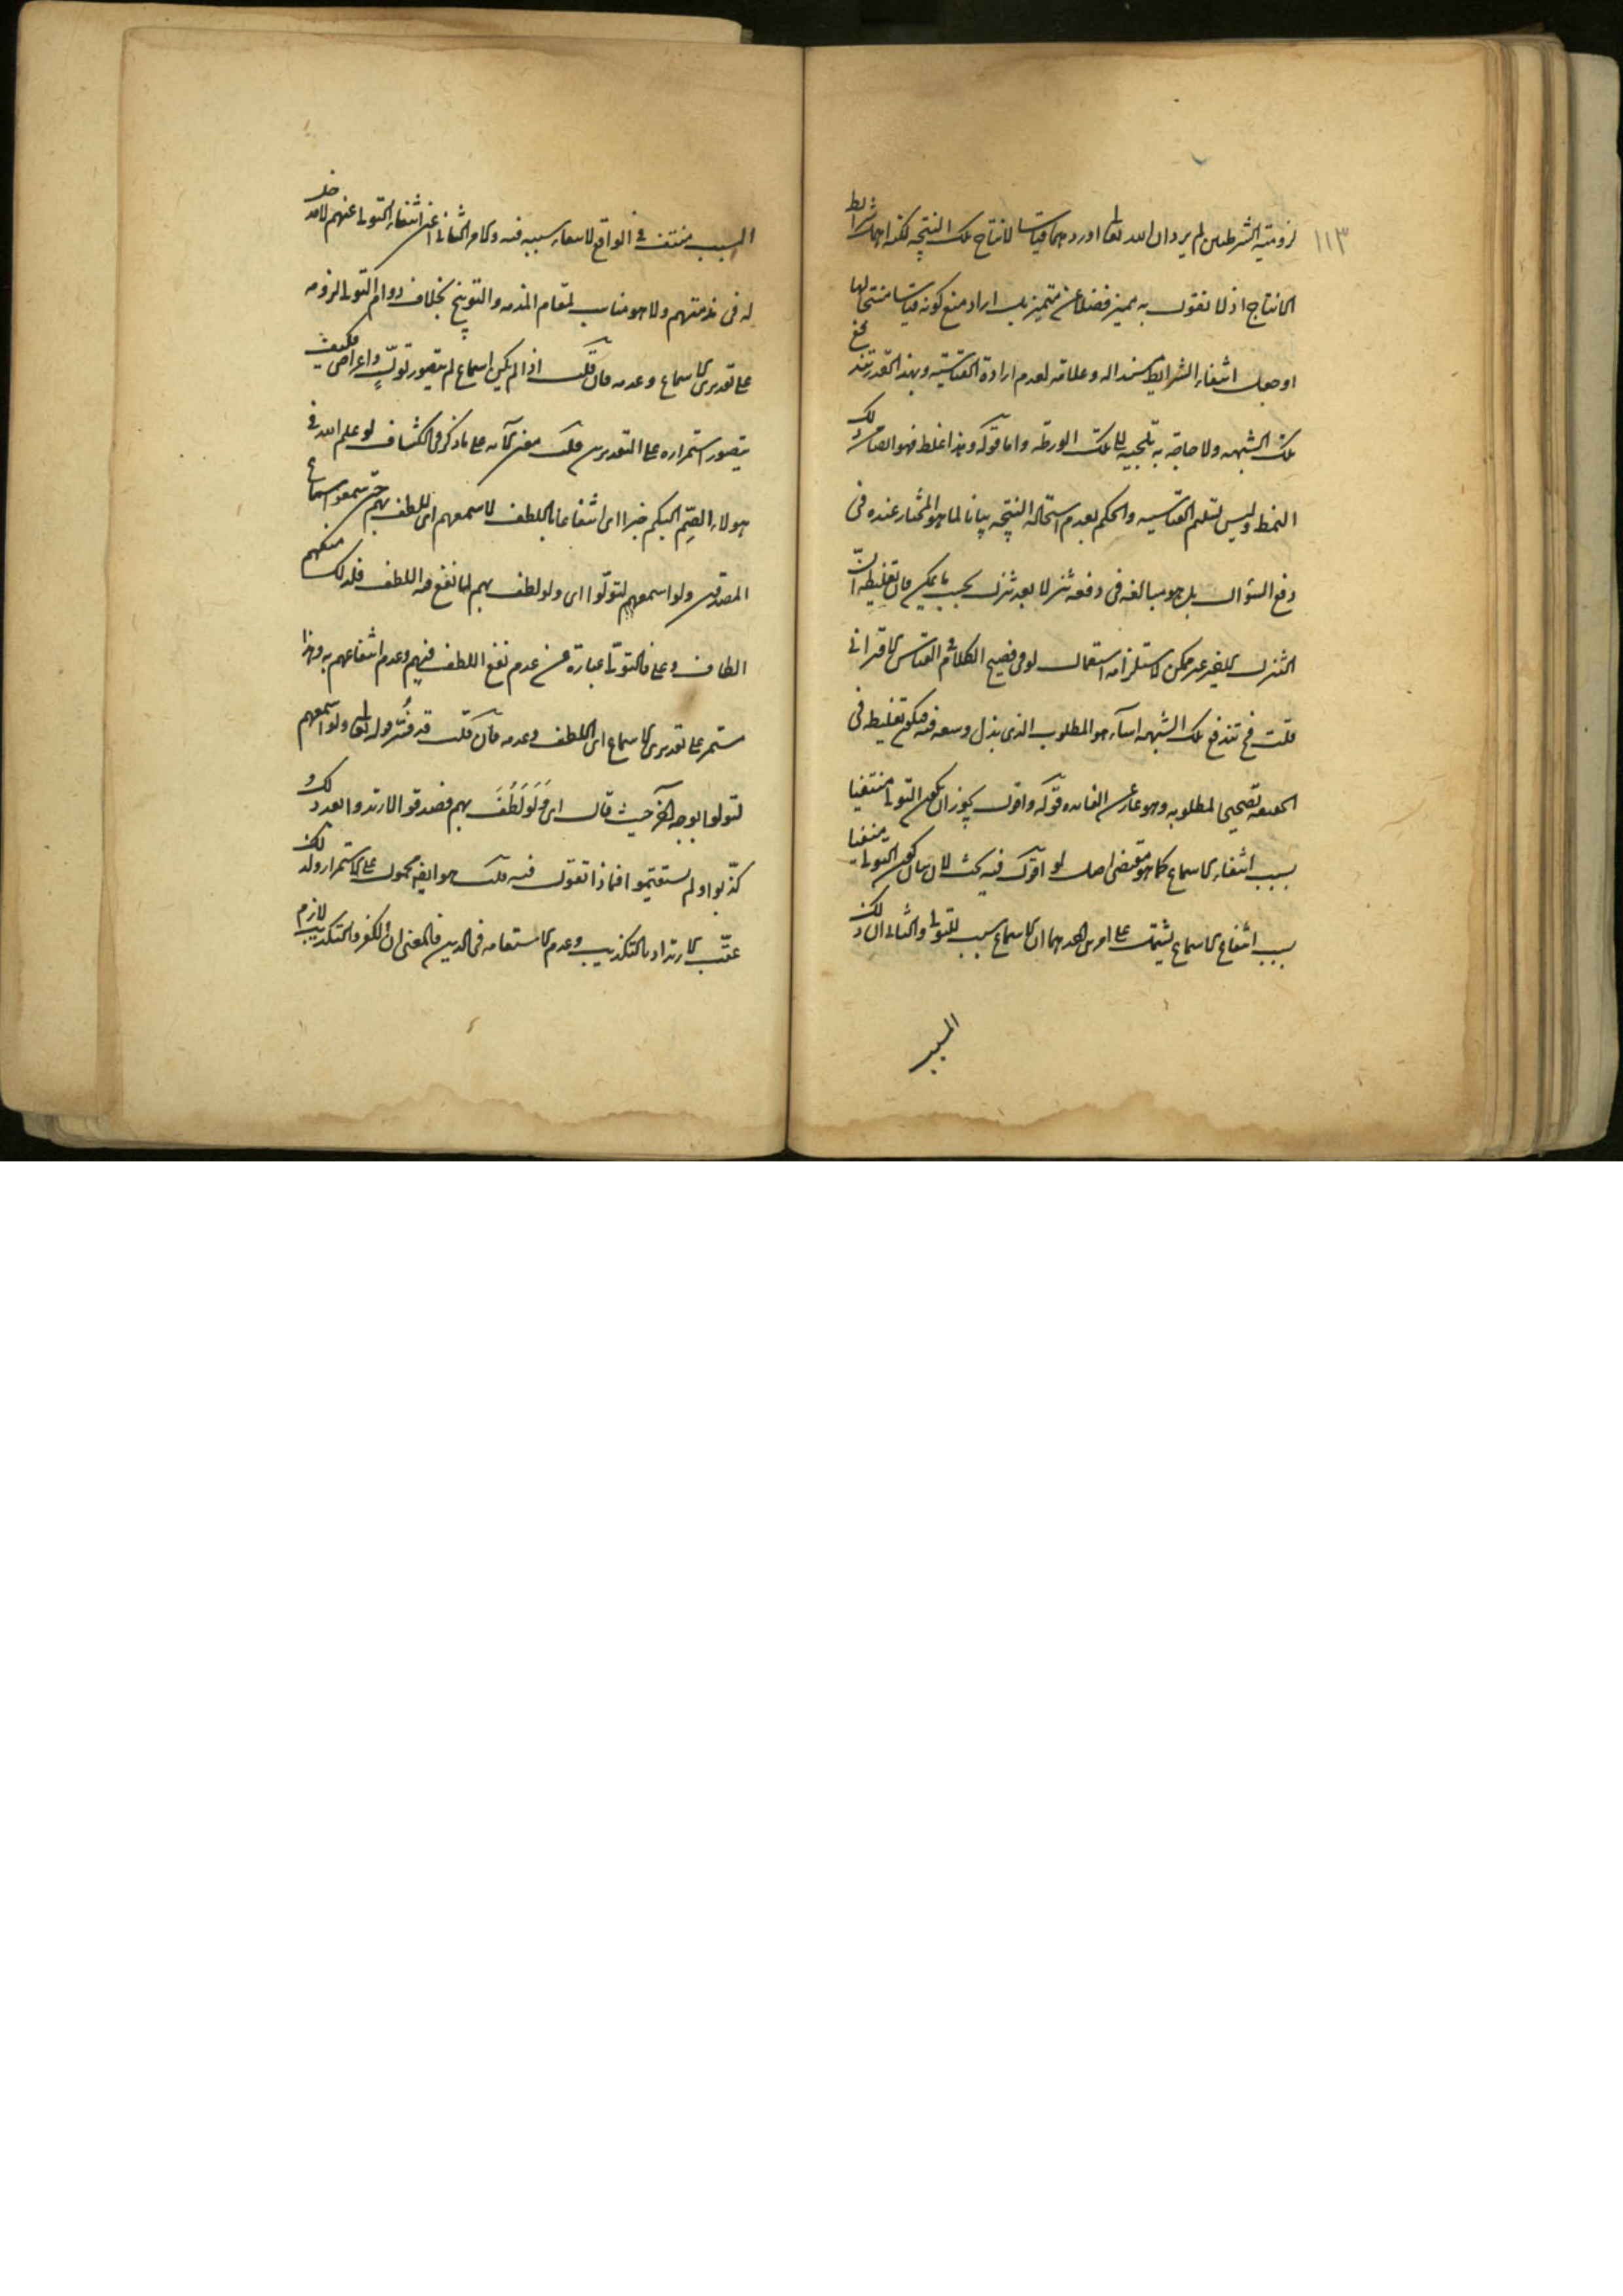 ١١٣
لزومية الشرطيتين لم يرد ان الله تعالى اوردهما قياسا لانتاج تلك النتيجة لكنه اهمل شرائط
الانتاج اذ لا تقول به مميز فضلا عن متميز بل اراد منع كونه قياسا منتجا لها
وجعل انتفاء الشرائط سندا له وعلامة لعدم ارادة القياسية وبهذا القدر تندفع
تلك الشبهة ولا حاجة به تلجيه الى تلك الورطة واما قوله وهذا غلط فهو ايضا من ذلك
النمط وليس تسليم القياسية والحكم بعدم استحالة النتيجة بيانا لما هو المختار عنده في
دفع السؤال بل هو مبالغة في دفعه تنزلا بعد تنزل بحسب ما يمكن فان تغليطه ان
التنزل الاخير غير ممكن لاستلزامه استعمال لو في فصيح الكلام في القياس الاقتراني
قلت فح تندفع تلك الشبهة هو المطلوب الذي بذل وسعه فيه فيكون تغليطه في
الحقيقة تصحيحا لمطلوبه وهو عار عن الفائدة قوله واقول يجوز ان يكون التولى منتفيا
بسبب انتفاء الاسماع كما هو مقتضى اصل لو اقول فيه بحث لان بيان كون التولى منتفيا
بسبب انتفاء الاسماع يشتمل على امرين احدهما ان الاسماع سبب للتولى والثانى ان ذلك
المسبب
السبب منتف في الواقع لانتفاء سببه فيه والامر الثانى اعنى انتفاء التولى عنهم لا مدخل
له في مذمتهم ولا هو مناسب لمقام المذمة والتوبيخ بخلاف دوام التولى لزومه
على تقديرى الاسماع وعدمه فان قلت اذا لم يكن اسماع لم يتصور تولٍّ واعراض فكيف
يتصور استمراره على التقديرين قلت معنى الآية على ما ذكر في الكشاف لو علم الله في
هولاء الصم البكم خيرا اى انتفاعا باللطف لاسمعهم اى للطف بهم حتى سمعوا سماع
المصدقين ولو اسمعهم لتولوا اى ولو لطف بهم لما نفع فيه اللطف فلذلك منعهم
الطافه وعلى هذا فالتولى عبارة عن عدم نفع اللطف فيهم وعدم انتفاعهم به وهذا
مستمر على تقديرى الاسماع اى اللطف وعدمه فان قلت قد فسر قوله تعالى ولو اسمعهم
لتولوا بوجه آخر حيث قال اى وَلَو لَطَفَ بهم فصدقوا لارتدوا بعد ذلك و
كذّبوا ولم يستقيموا فماذا تقول فيه قلت هو ايضا محمول على الاستمرار وذلك لانه
عقّب الارتداد بالتكذيب وعدم الاستقامة في الدين فالمعنى ان الكفر والتكذيب لازم